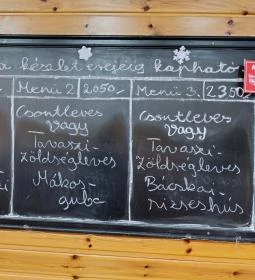 a készlet erejéig kapható
Menü 2. 2050.-
Csontleves
vagy
Tavaszi-
zöldségleves
Mákos-
guba
Menü 3. 2350.-
Csontleves
vagy
Tavaszi-
zöldségleves
Bácskai-
rizseshús